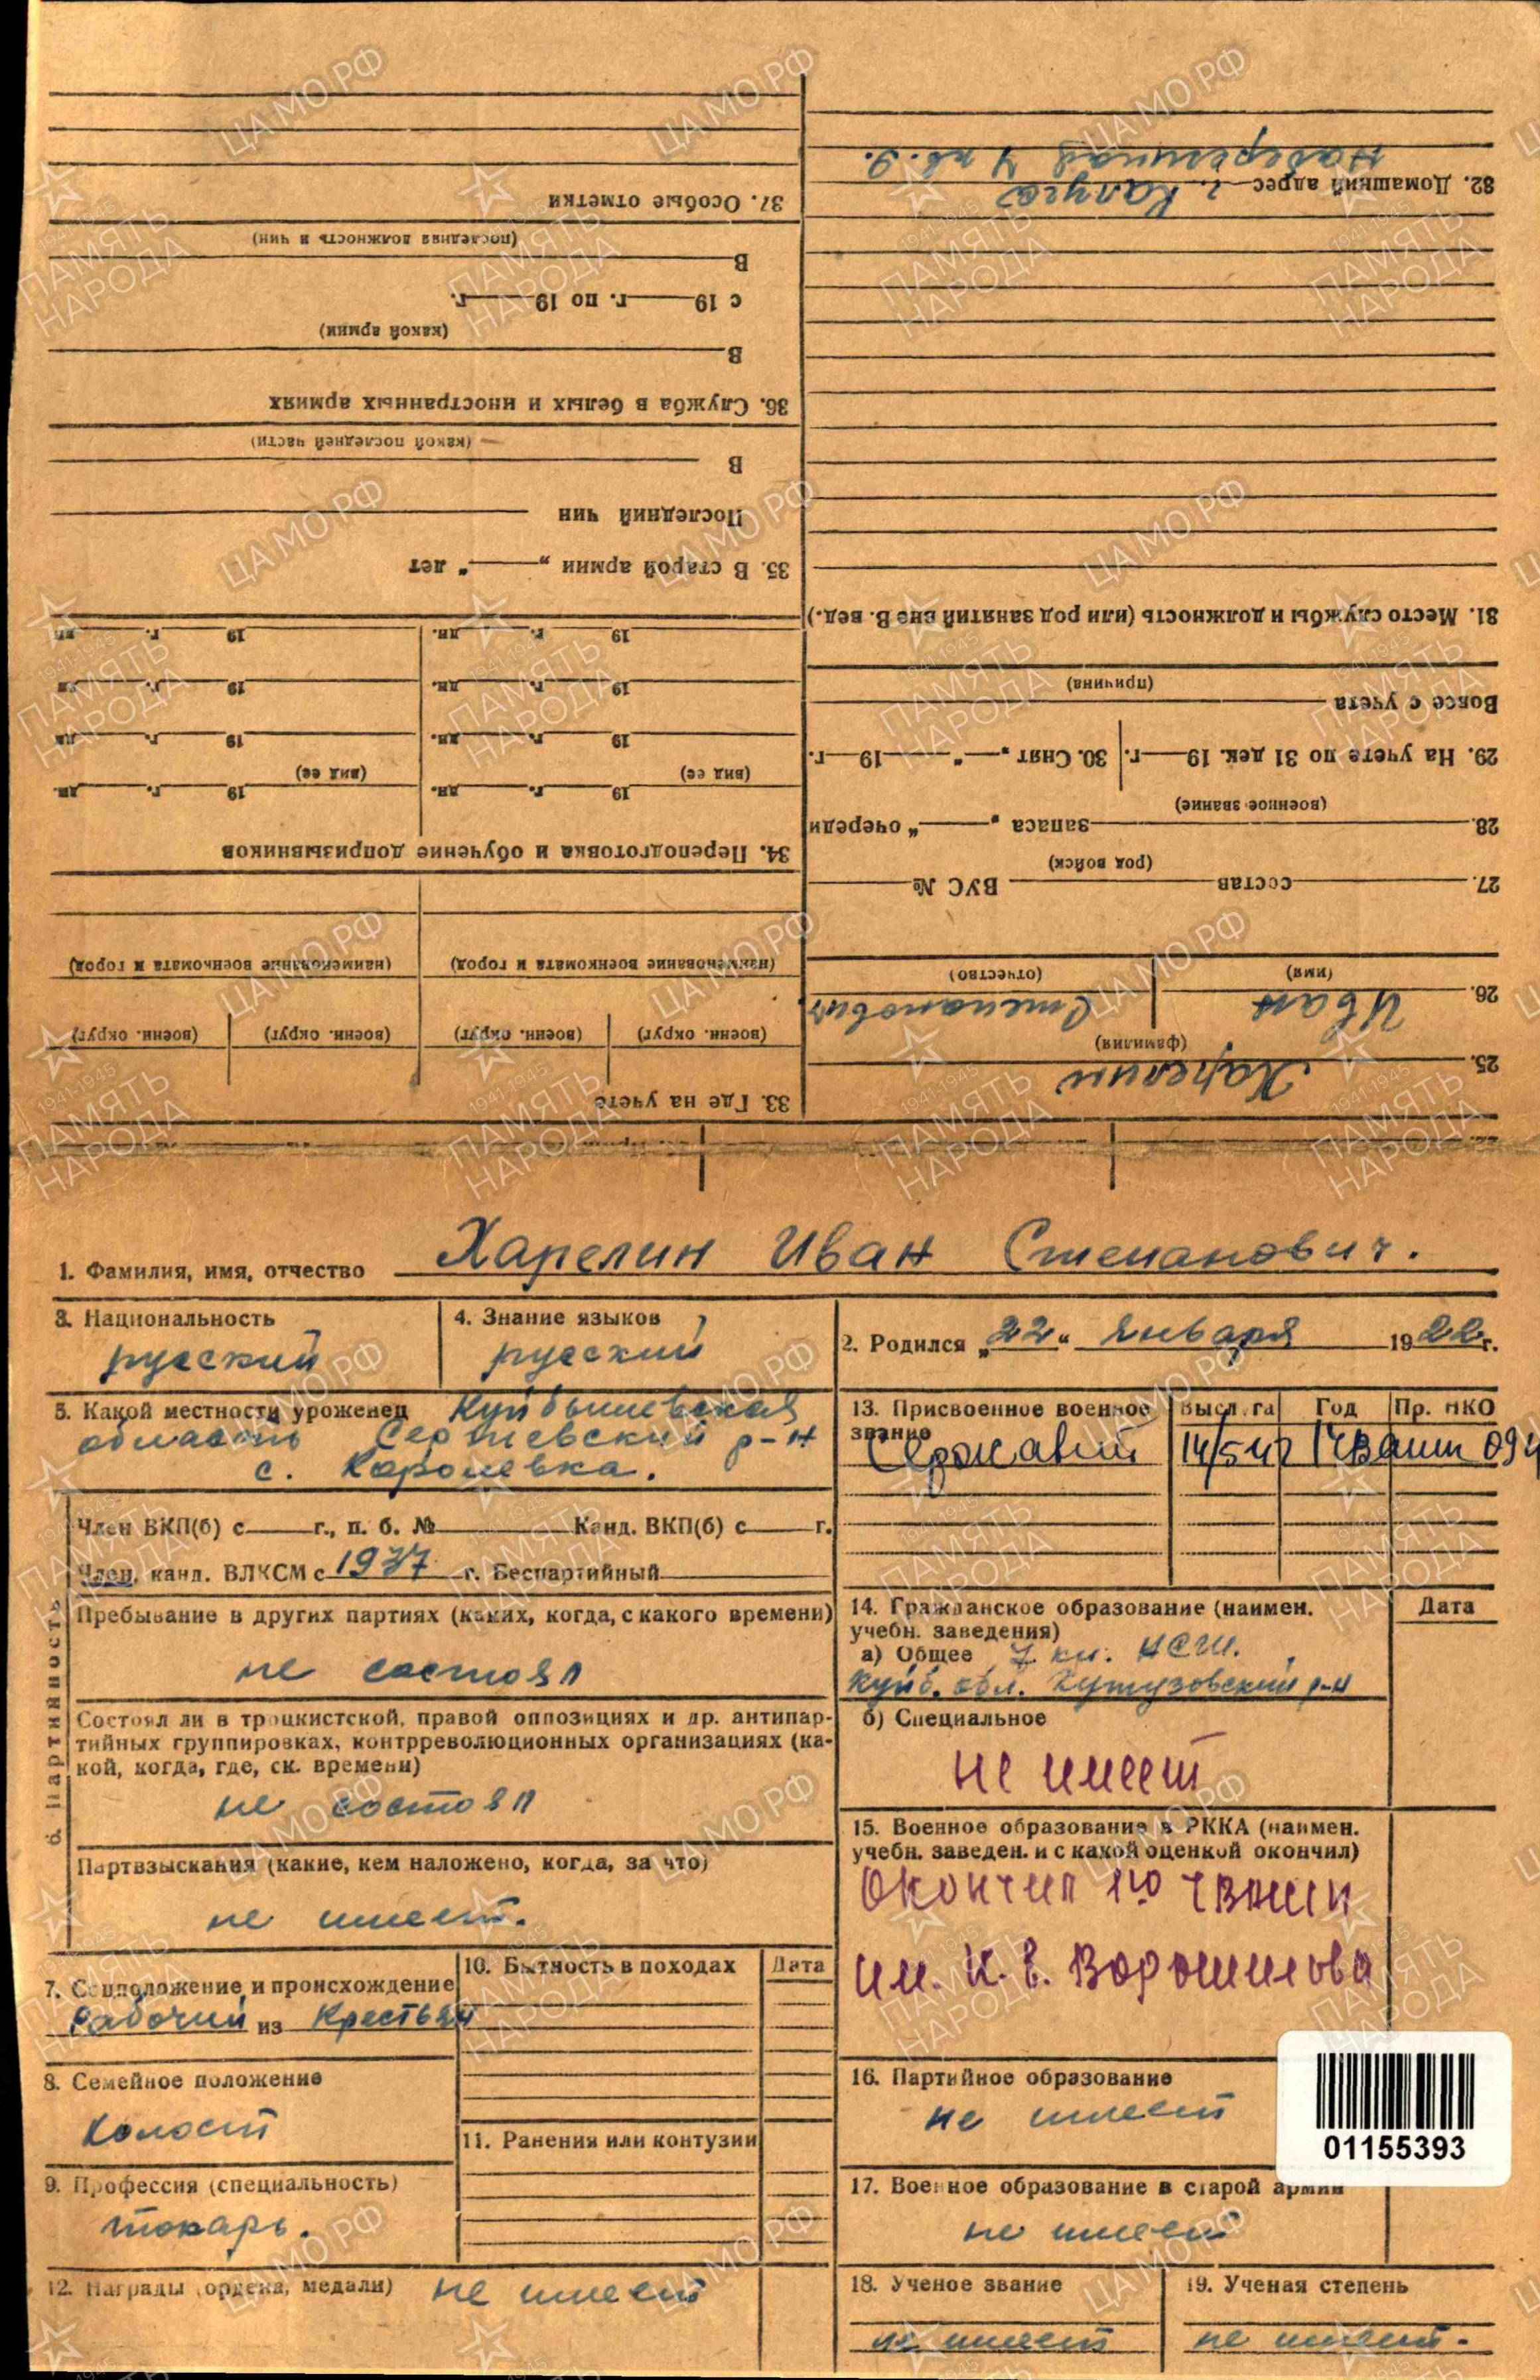 82. Домашний адрес г. Калуга
Набережная 4 кв. 9.
31. Место службы и должность (или род занятий вне В. вед.)
Вовсе с учета
(причина)
29. На учете по 31 дек. 19 г. 30. Снят „ “ 19 г.
28. запаса „ “ очереди
(военное звание)
27. состав ВУС №
(род войск)
26. Иван Степанович
(имя) (отчество)
25. Харелин
(фамилия)
37. Особые отметки
(последняя должность и чин)
В
с 19 г. по 19 г.
(какой армии)
В
36. Служба в белых и иностранных армиях
(какой последней части)
В
Последний чин
35. В старой армии „ “ лет
19 г. дн. 19 г. дн.
19 г. дн. 19 г. дн.
19 г. дн. 19 г. дн.
(вид ее) (вид ее)
19 г. дн. 19 г. дн.
34. Переподготовка и обучение допризывников
(наименование военкомата и город) (наименование военкомата и город)
(воени. округ) (воени. округ) (воени. округ) (воени. округ)
33. Где на учете
1. Фамилия, имя, отчество Харелин Иван Степанович.
3. Национальность
русский
4. Знание языков
русский
2. Родился „22“ января 1922 г.
5. Какой местности уроженец Куйбышевская
область Сергиевский р-н
с. Королевка.
13. Присвоенное военное звание Высл. га Год Пр. НКО
Сержавий 14/5 42 1 ЧВАШМ 094
Член ВКП(б) с г., п. б. № Канд. ВКП(б) с г.
Член, канд. ВЛКСМ с 1937 г. Беспартийный
6. Партийность
Пребывание в других партиях (каких, когда, с какого времени)
не состоял
Состоял ли в троцкистской, правой оппозициях и др. антипар-
тийных группировках, контрреволюционных организациях (ка-
кой, когда, где, ск. времени)
не состоял
Партвзыскания (какие, кем наложено, когда, за что)
не имеет.
14. Гражданское образование (наимен. учебн. заведения) Дата
а) Общее 7 кл. НСШ.
Куйб. обл. Кутузовский р-н
б) Специальное
не имеет
15. Военное образование в РККА (наимен.
учебн. заведен. и с какой оценкой окончил)
Окончил 1ю ЧВАШМ
им. К. Е. Ворошилова
7. Соцположение и происхождение
Рабочий из Крестьян
10. Бытность в походах Дата
8. Семейное положение
холост
11. Ранения или контузии
9. Профессия (специальность)
токарь.
12. Награды (ордена, медали) не имеет
16. Партийное образование
не имеет
01155393
17. Военное образование в старой армии
не имеет
18. Ученое звание
не имеет
19. Ученая степень
не имеет.
ЦА МО РФ
1941-1945
ПАМЯТЬ
НАРОДА